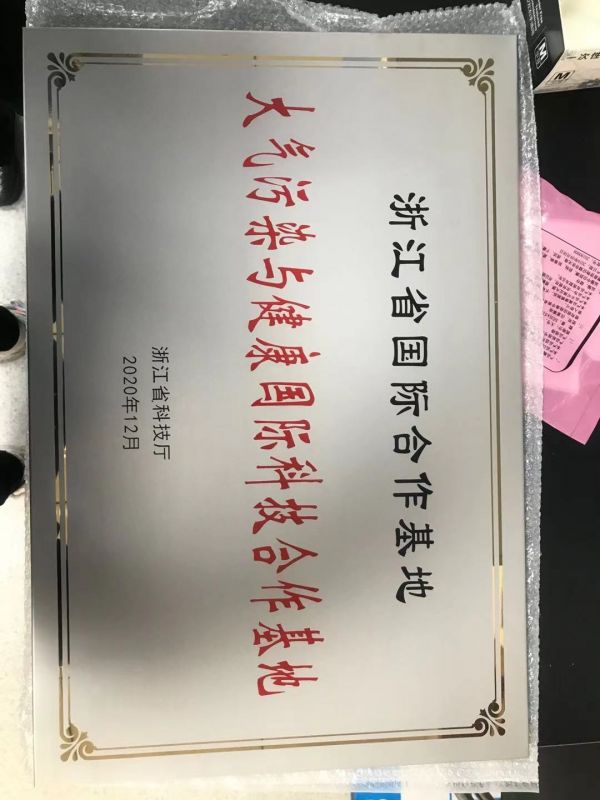 浙江省国际合作基地
大气污染与健康国际科技合作基地
浙江省科技厅
2020年12月
M
M
一次性